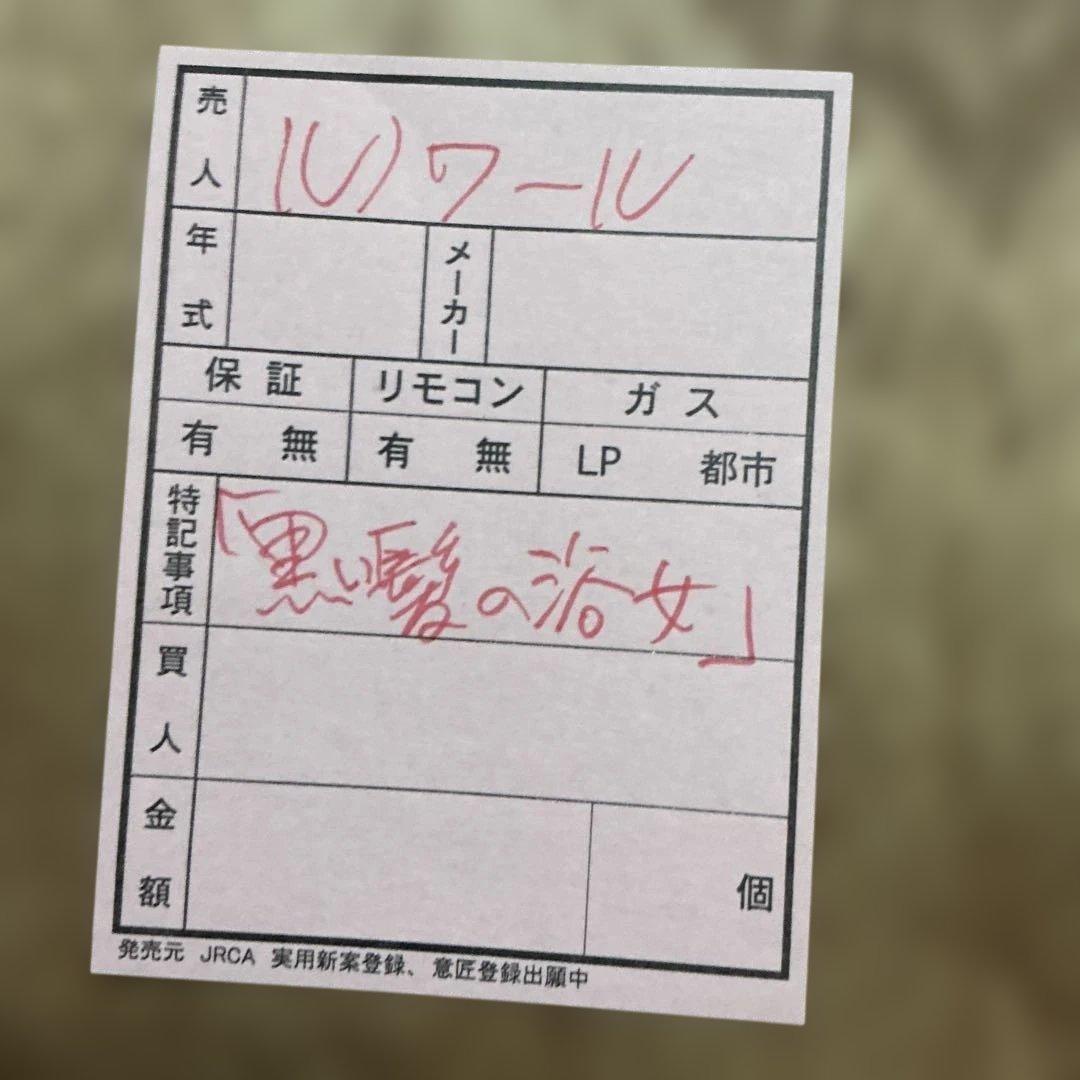 売人 ル)ワール
年式 メーカー
保証 リモコン ガス
有 無 有 無 LP 都市
特記事項 「黒い髪の浴女」
買人
金額 個
発売元 JRCA 実用新案登録、意匠登録出願中